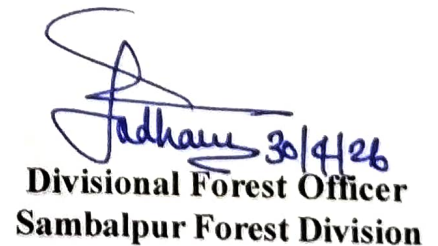 30/4/26
Divisional Forest Officer
Sambalpur Forest Division